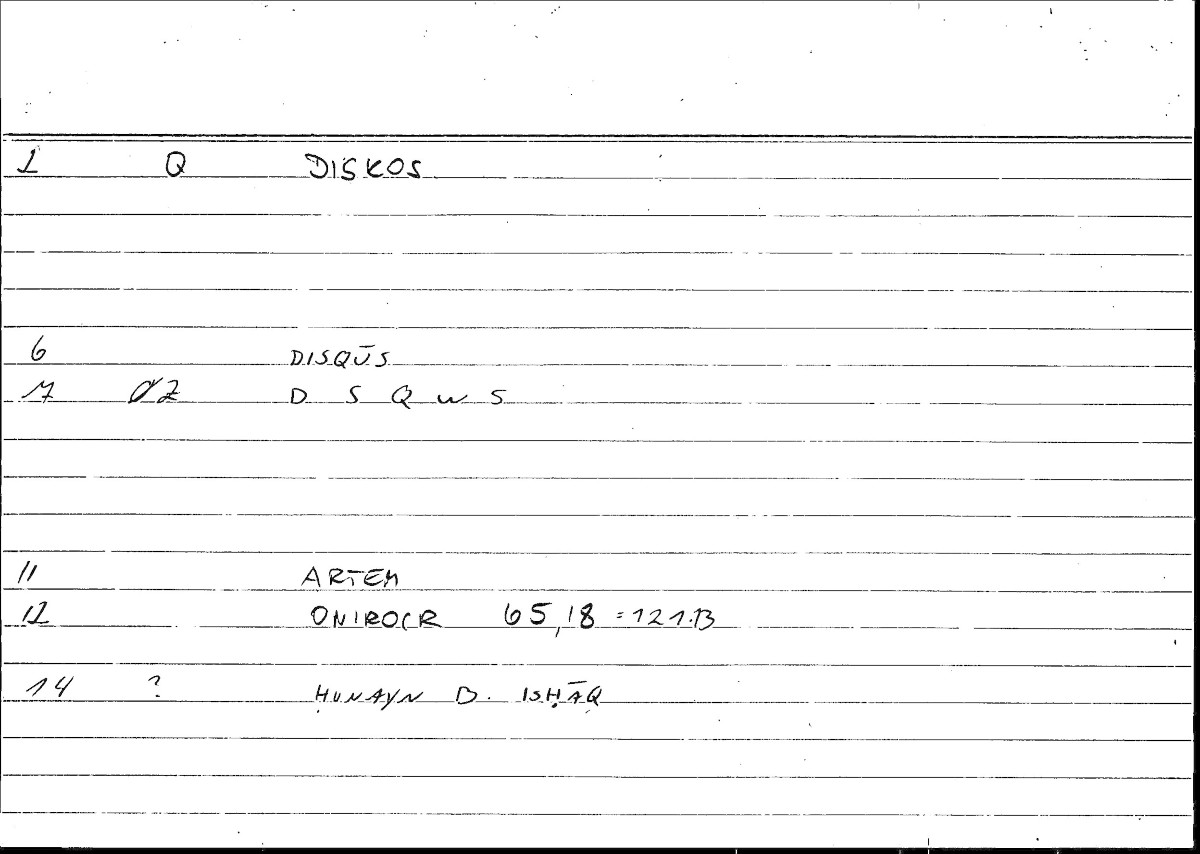 1 Q DISKOS
6 DISQŪS
7 02 D S Q W S
11 ARTEM
12 ONIROCR 65,18 = 121.13
14 ? ḤUNAYN B. ISḤĀQ